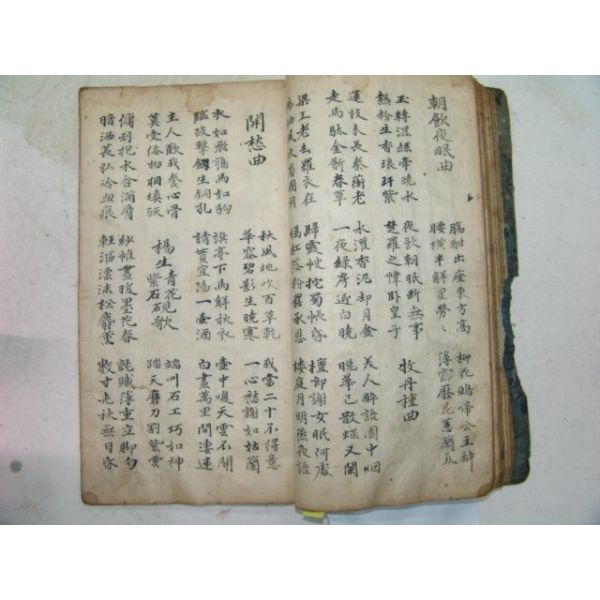 朝飮夜眠曲
觴酣出座東方高 柳花鴉啼公主醉
腰橫半解星勞勞 薄露壓花蕙蘭氣
玉轉濕絲牽曉水 夜飮朝眠斷無事
熱粉生香琅玕紫 楚羅之幃臥皇子 牧丹種曲
蓮枝未長秦蘅老 水灌香泥却月盆 美人醉語園中烟
走馬馱金斸春草 一夜綠房迎白曉 晚華已散蝶又闌
梁王老去羅衣在 歸霞帔拖蜀帳昏 檀郎謝女眠何處
拂袖風吹蜀國 嫣紅落粉罷承恩 樓庭月明燕夜語
開愁曲
秋風地吹百草乾 我當二十不得意
華容碧影生曉寒 一心愁謝如枯蘭
衣如飛鶉馬如狗 旗亭下馬解秋衣 壺中喚天雲不開
臨歧擊劒生銅吼 請貰宜陽一壺酒 白晝萬里閒凄迷
主人歡我養心骨 楊生青花紫石硯歌 端州石工巧如神
莫受俗物相塡 踏天磨刀割紫雲
傭刓抱水含滿脣 紗帷晝暖墨花春 膩薄重立脚勻
暗洒萇弘冷血痕 輕漚漂沫松麝薰 數寸光秋無日昏